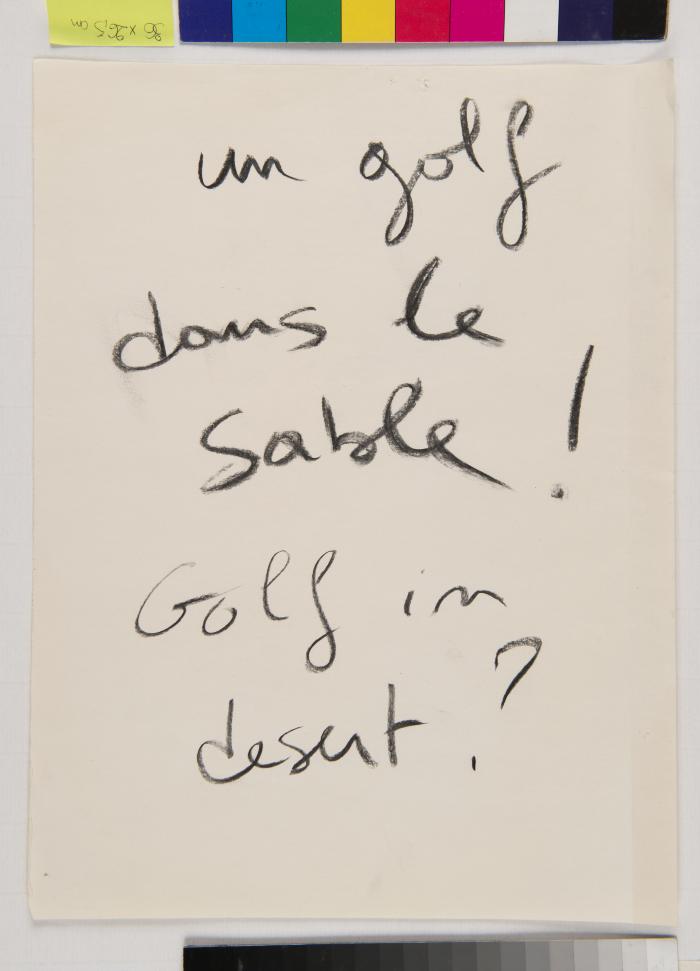 36 x 26,5 cm
un golf
dans le
sable !
Golf in
desert ?